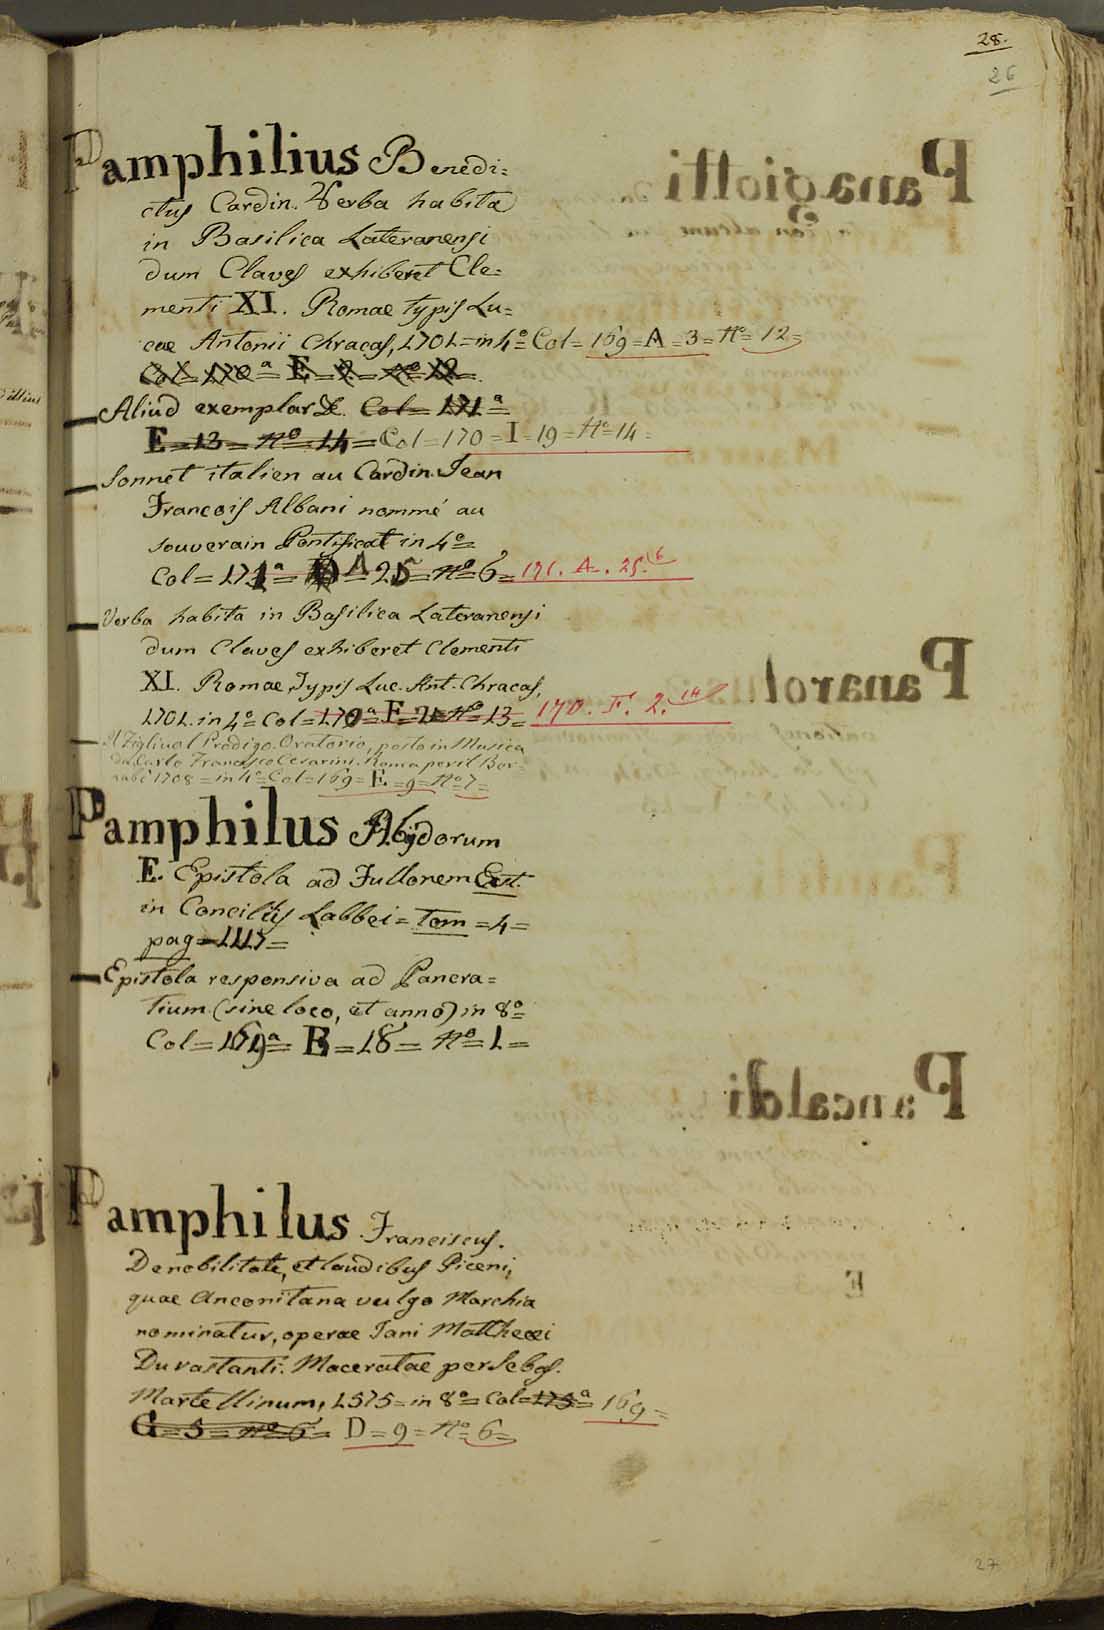 28.
26
Pamphilius Benedi=
ctus Cardin. Verba habita
in Basilica Lateranensi
dum Claves exhiberet Cle=
menti XI. Romae typis Lu=
cae Antonii Chracas, 1701=in 4º=Col=169=A=3=Nº=12=
Col=170ª=E=9=Nº 12=
Aliud exemplar &. Col=171ª=
E=13=Nº 14=Col=170=I=19=Nº=14=
Sonnet italien au Cardin. Jean
Francois Albani nommé au
souverain Pontificat in 4º=
Col=171ª= A=25=Nº=6=171. A. 25. 6
Verba habita in Basilica Lateranensi
dum Claves exhiberet Clementi
XI. Romae, Typis Luc. Ant. Chracas,
1701. in 4º Col=170ª=F=2=Nº=13=170. F. 2. 14
Il Figliuol Prodigo. Oratorio, posto in Musica
da Carlo Francesco Cesarini. Roma per il Ber=
nabò 1708=in 4º=Col=169=E=9=Nº=7=
Pamphilus Abydorum
E. Epistola ad Fullonem Ext.
in Conciliis Labbei=Tom=4=
pag=1115=
Epistola responsiva ad Pancra=
tium (sine loco, et anno) in 8º=
Col=169ª= B=18=Nº=1=
Pamphilus Franciscus.
De nobilitate, et laudibus Piceni,
quae Anconitana vulgo Marchia
nominatur, operae Jani Matthaei
Durastanti. Maceratae per Sebas.
Martellinum, 1575=in 8º=Col=175ª=169=
G=5=Nº 6= D=9=Nº=6=
27